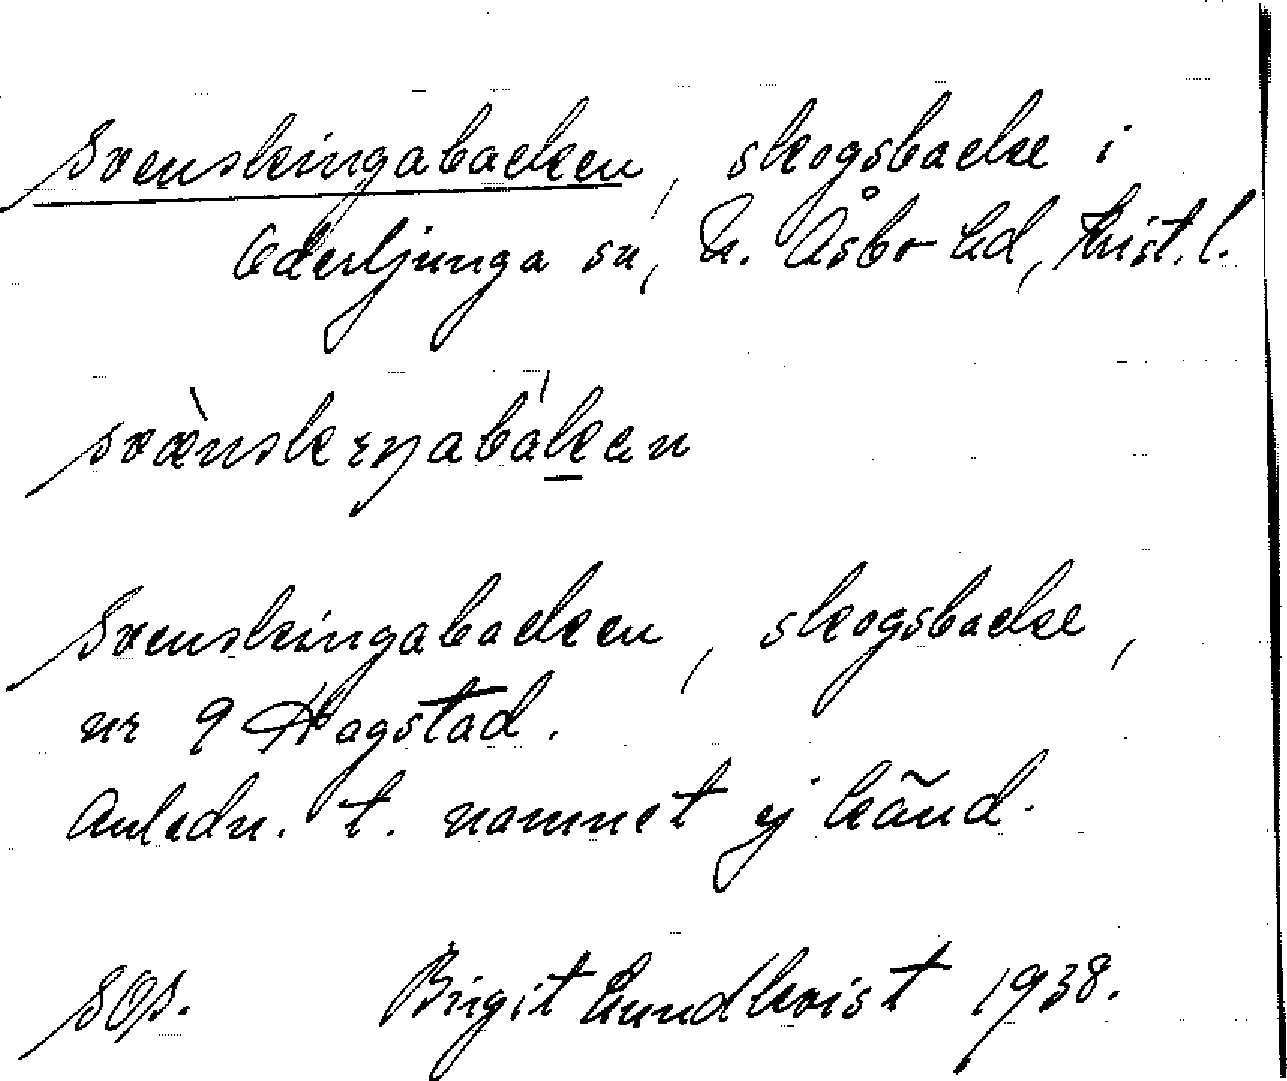 Svenskingabacken, skogsbacke i
Oderljunga sn, N. Åsbo hd, Krist. l.
svæ̀nskeŋabák̲en
Svenskingabacken, skogsbacke,
nr 9 Hagstad.
Anledn. t. namnet ej känd.
SOs. Birgit Lundkvist 1938.